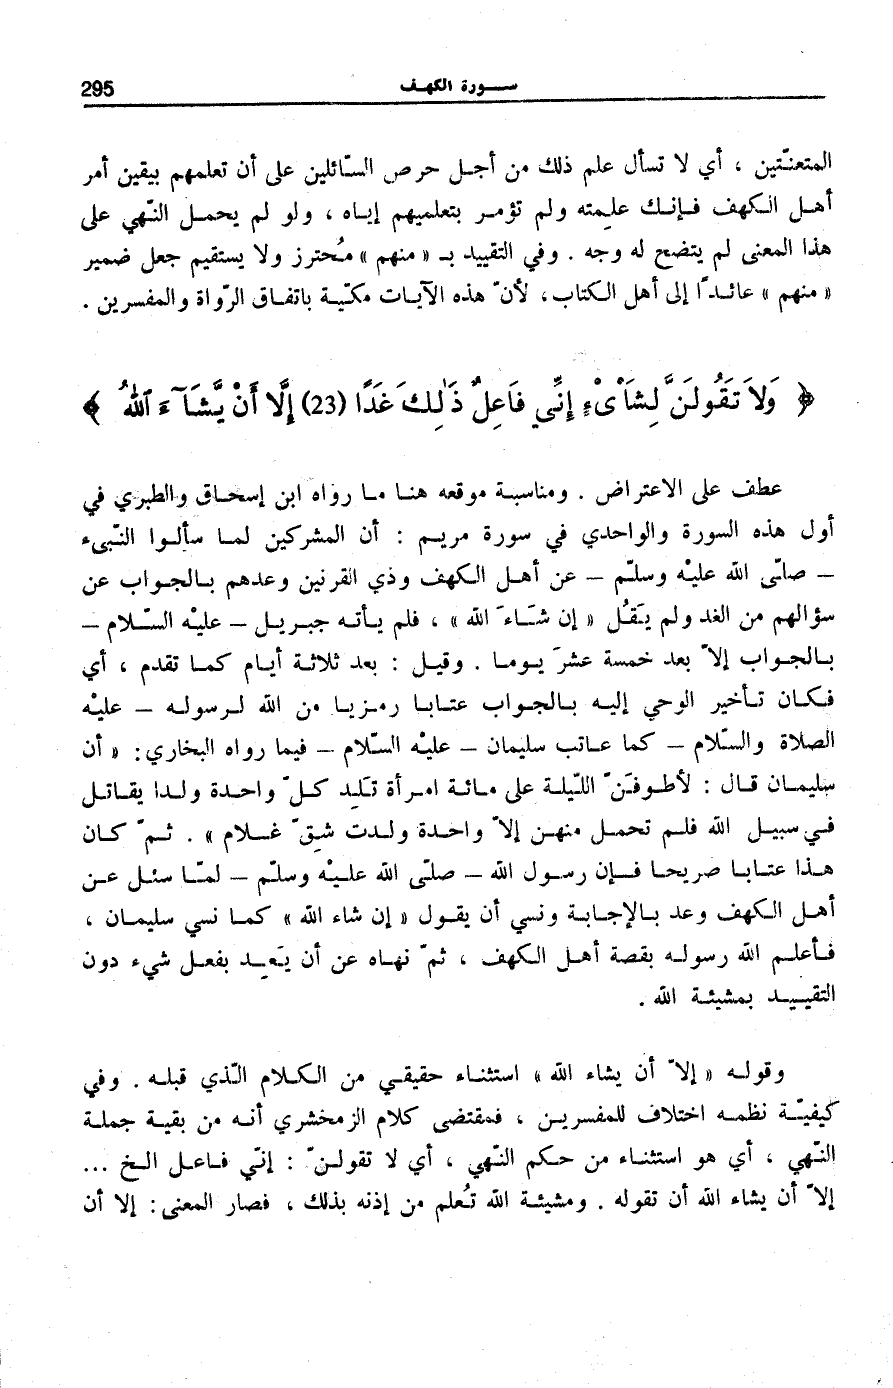 295 سورة الكهف
المتعنّتين ، أي لا تسأل علم ذلك من أجل حرص السّائلين على أن تعلمهم بيقين أمر
أهل الكهف فإنك علمته ولم تؤمر بتعليمهم إياه ، ولو لم يحمل النّهي على
هذا المعنى لم يتضح له وجه . وفي التقييد بـ « منهم » مُحترز ولا يستقيم جعل ضمير
« منهم » عائدًا إلى أهل الكتاب، لأنّ هذه الآيات مكيّة باتفاق الرّواة والمفسرين .
﴿ وَلاَ تَقُولَنَّ لِشَاْىْءٍ إِنِّي فَاعِلٌ ذَٰلِكَ غَدًا (23) إِلَّا أَنْ يَّشَآءَ ٱللَّهُ ﴾
عطف على الاعتراض . ومناسبة موقعه هنا ما رواه ابن إسحاق والطبري في
أول هذه السورة والواحدي في سورة مريم : أن المشركين لما سألوا النّبيء
– صلّى الله عليْه وسلّم – عن أهل الكهف وذي القرنين وعدهم بالجواب عن
سؤالهم من الغد ولم يَقُل « إن شَاءَ الله » ، فلم يأته جبريل – عليْه السّلام –
بالجواب إلاّ بعد خمسة عشرَ يوما . وقيل : بعد ثلاثة أيام كما تقدم ، أي
فكان تأخير الوحي إليه بالجواب عتابا رمزيا من الله لرسوله – عليْه
الصلاة والسّلام – كما عاتب سليمان – عليْه السّلام – فيما رواه البخاري: « أن
سليمان قال : لأطوفنّ اللّيلة على مائة امرأة تَلِد كلّ واحدة ولدا يقاتل
في سبيل الله فلم تحمل منهن إلاّ واحدة ولدت شِقّ غلام » . ثمّ كان
هذا عتابا صريحا فإن رسول الله – صلّى الله عليْه وسلّم – لمّا سئل عن
أهل الكهف وعد بالإجابة ونسي أن يقول « إن شاء الله » كما نسي سليمان ،
فأعلم الله رسوله بقصة أهل الكهف ، ثمّ نهاه عن أن يَعِد بفعل شيء دون
التقييد بمشيئة الله .
وقوله « إلاّ أن يشاء الله » استثناء حقيقي من الكلام الّذي قبله . وفي
كيفيّة نظمه اختلاف للمفسرين ، فمقتضى كلام الزمخشري أنه من بقية جملة
النّهي ، أي هو استثناء من حكم النّهي ، أي لا تقولنّ : إنّي فاعل الخ ...
إلاّ أن يشاء الله أن تقوله . ومشيئة الله تُعلم من إذنه بذلك ، فصار المعنى: إلا أن